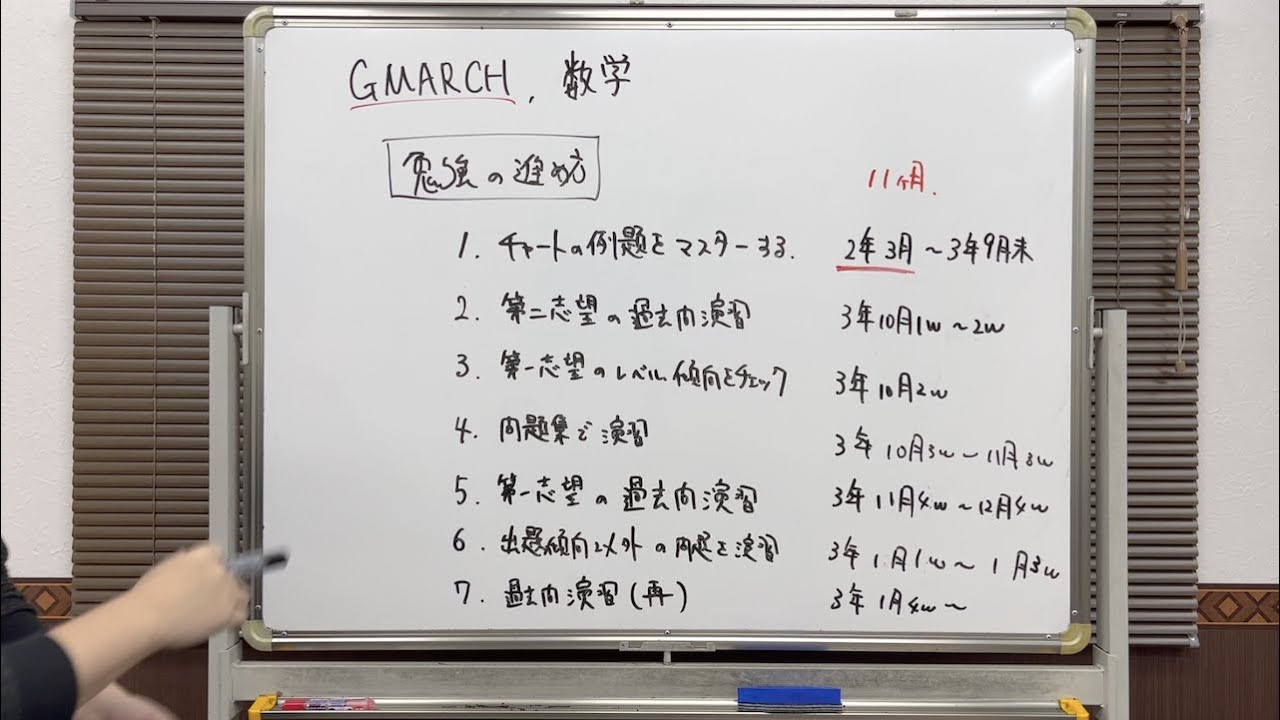 GMARCH, 数学
勉強の進め方
11ヶ月.
1. チャートの例題をマスターする. 2年3月～3年9月末
2. 第二志望の過去問演習 3年10月1w～2w
3. 第一志望のレベル、傾向をチェック 3年10月2w
4. 問題集で演習 3年10月3w～11月3w
5. 第一志望の過去問演習 3年11月4w～12月4w
6. 出題傾向以外の問題を演習 3年1月1w～1月3w
7. 過去問演習(再) 3年1月4w～